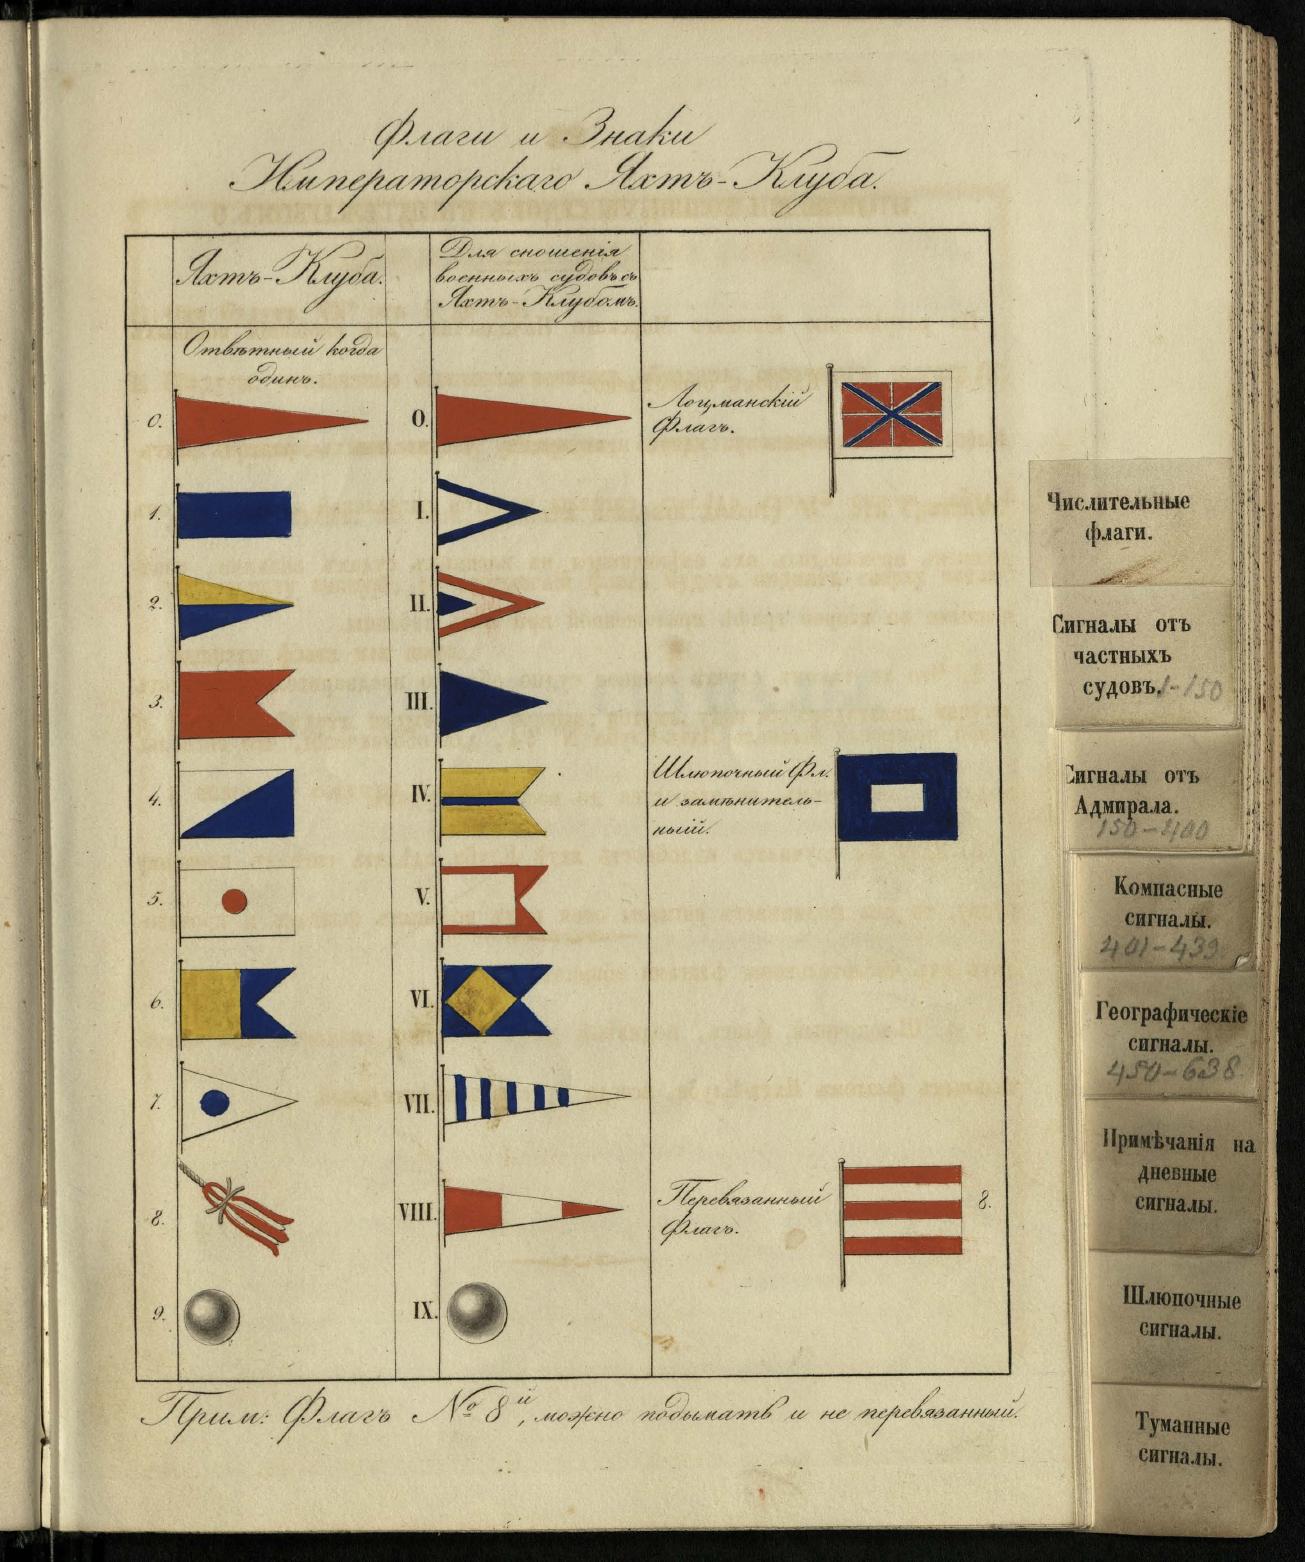 Флаги и Знаки
Императорскаго Яхтъ-Клуба.
Яхтъ-Клуба.
Для сношенія
военныхъ судовъ съ
Яхтъ-Клубомъ.
Отвѣтный когда
одинъ.
0.
1.
2.
3.
4.
5.
6.
7.
8.
9.
0.
I.
II.
III.
IV.
V.
VI.
VII.
VIII.
IX.
Лоцманскій
Флагъ.
Шлюпочный Фл.
и замѣнитель-
ный.
Перевязанный
Флагъ.
8.
Прим: Флагъ № 8й, можно подымать и не перевязанный.
Числительные
флаги.
Сигналы отъ
частныхъ
судовъ. 1-150
Сигналы отъ
Адмирала.
150-400
Компасные
сигналы.
401-439
Географическіе
сигналы.
450-638
Примѣчанія на
дневные
сигналы.
Шлюпочные
сигналы.
Туманные
сигналы.